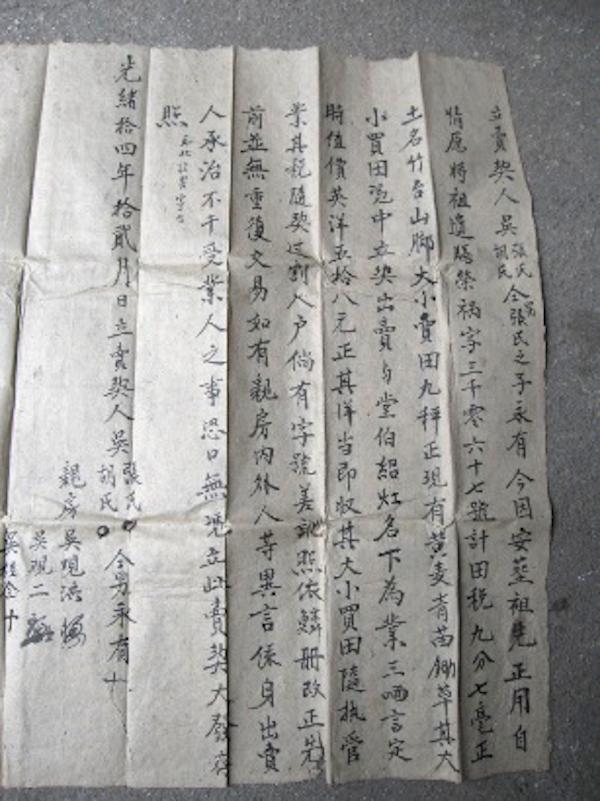 立賣契人吳張氏胡氏仝張氏之子永有今因安塟祖先正用自
情愿將祖遺 禍字三千零六十七號計田稅九分七毫正
土名竹 山脚大小賣田九秤正現有黃麦青苗鋤草其大
小買田憑中立契出賣与堂伯紹灶名下為業三 言定
時值價英洋五拾八元正其洋当即收其大小買田隨执管
業其稅隨契过割入户倘有字號差訛照依鱗册改正先
前並無重復交易如有親房内外人等異言係身出賣
人承治不干受業人之事恐口無憑立此賣契大發存
照
光緒拾四年拾貳月日立賣契人吳張氏胡氏仝男永有十
親房吳觀洪
吳觀二
吳 十